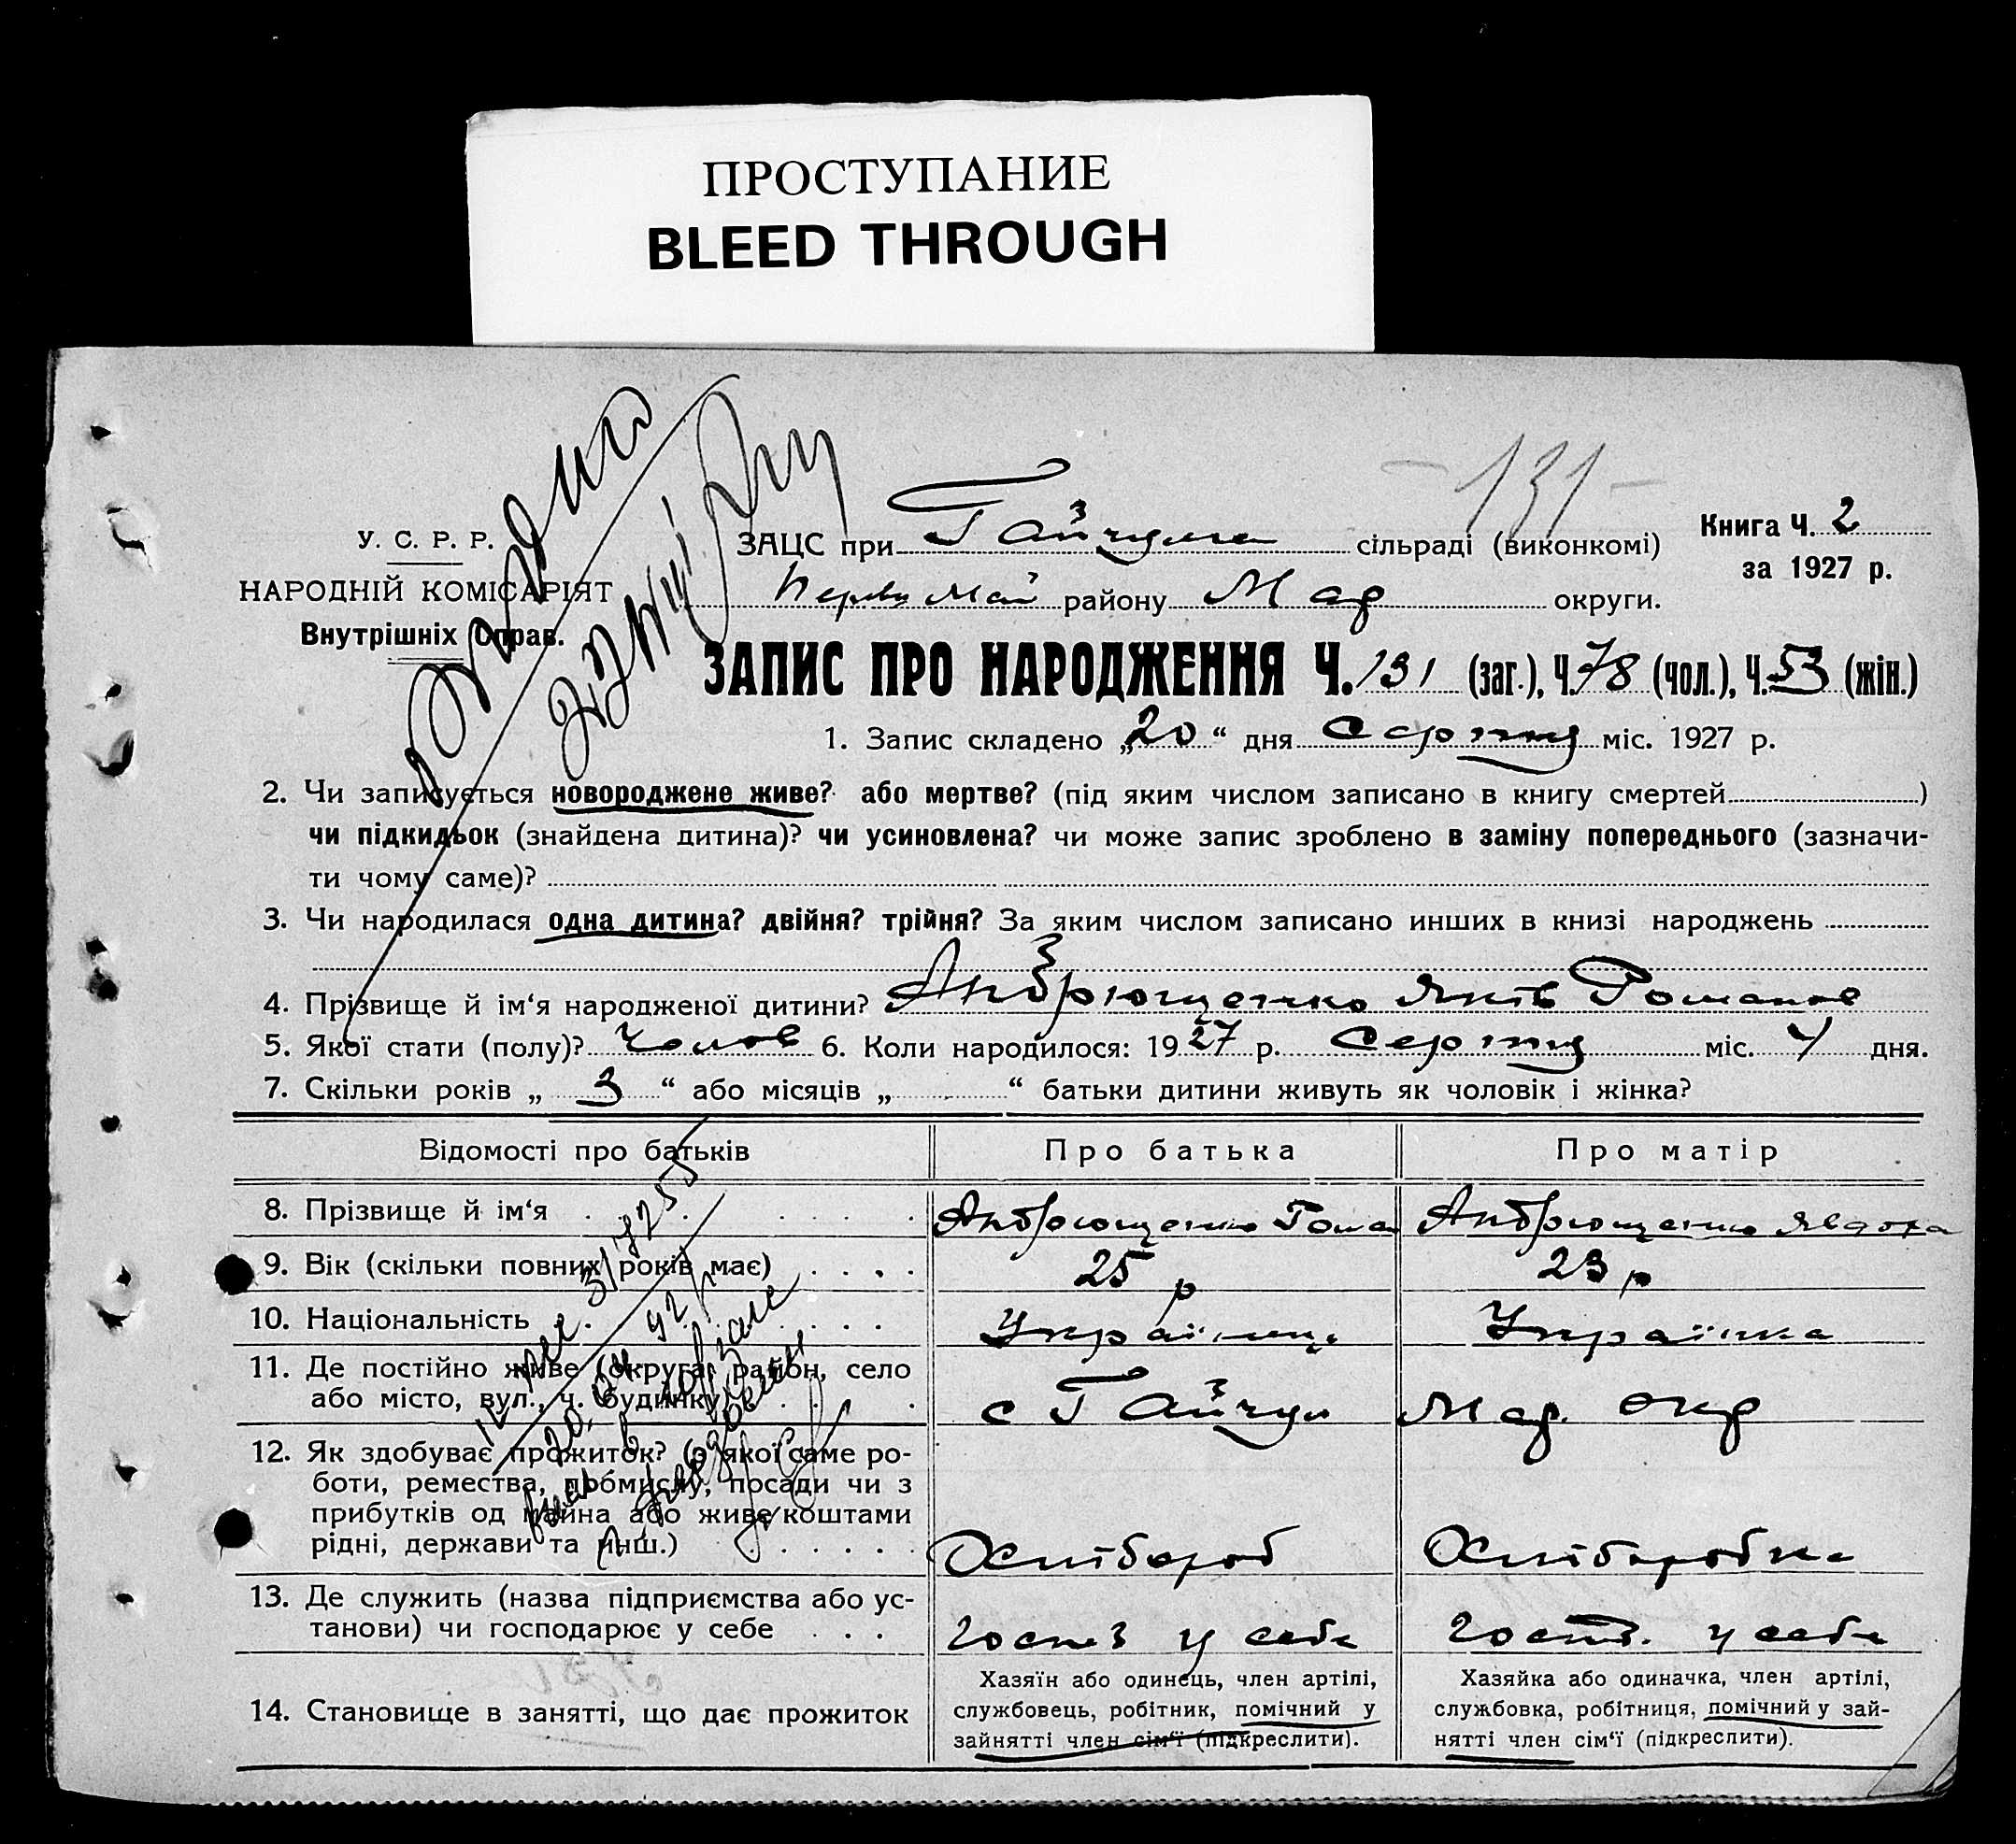 ПРОСТУПАНИЕ
BLEED THROUGH
-131-
У. С. Р. Р.
НАРОДНІЙ КОМІСАРІЯТ
Внутрішніх Справ.
ЗАЦС при Гайчулм сільраді (виконкомі)
Книга Ч. 2
за 1927 р.
Первомай району Мар округи.
ЗАПИС ПРО НАРОДЖЕННЯ Ч. 131 (заг.), Ч. 78 (чол.), Ч. 53 (жін.)
1. Запис складено „20“ дня Серпня міс. 1927 р.
2. Чи записується новороджене живе? або мертве? (під яким числом записано в книгу смертей)
чи підкидьок (знайдена дитина)? чи усиновлена? чи може запис зроблено в заміну попереднього (зазначи-
ти чому саме)?
3. Чи народилася одна дитина? двійня? трійня? За яким числом записано инших в книзі народжень
4. Прізвище й ім‘я народженої дитини? Андрющенко Яків Романов
5. Якої стати (полу)? Чолов 6. Коли народилося: 1927 р. Серпня міс. 4 дня.
7. Скільки років „3“ або місяців „ “ батьки дитини живуть як чоловік і жінка?
Відомості про батьків Про батька Про матір
8. Прізвище й ім‘я Андрющенко Роман Андрющенко Явдоха
9. Вік (скільки повних років має) 25 р 23 р
10. Національність Українець Українка
11. Де постійно живе (округа, район, село
або місто, вул., ч. будинку) с Гайчул Мар. окр
12. Як здобуває прожиток? (з якої саме ро-
боти, ремества, промислу, посади чи з
прибутків од майна або живе коштами
рідні, держави та инш.) Хлібороб Хліборобка
13. Де служить (назва підприємства або ус-
танови) чи господарює у себе госп. у себе госп. у себе
14. Становище в занятті, що дає прожиток
Хазяїн або одинець, член артілі,
службовець, робітник, помічний у
зайнятті член сім‘ї (підкреслити).
Хазяйка або одиначка, член артілі,
службовка, робітниця, помічний у зай-
нятті член сім‘ї (підкреслити).